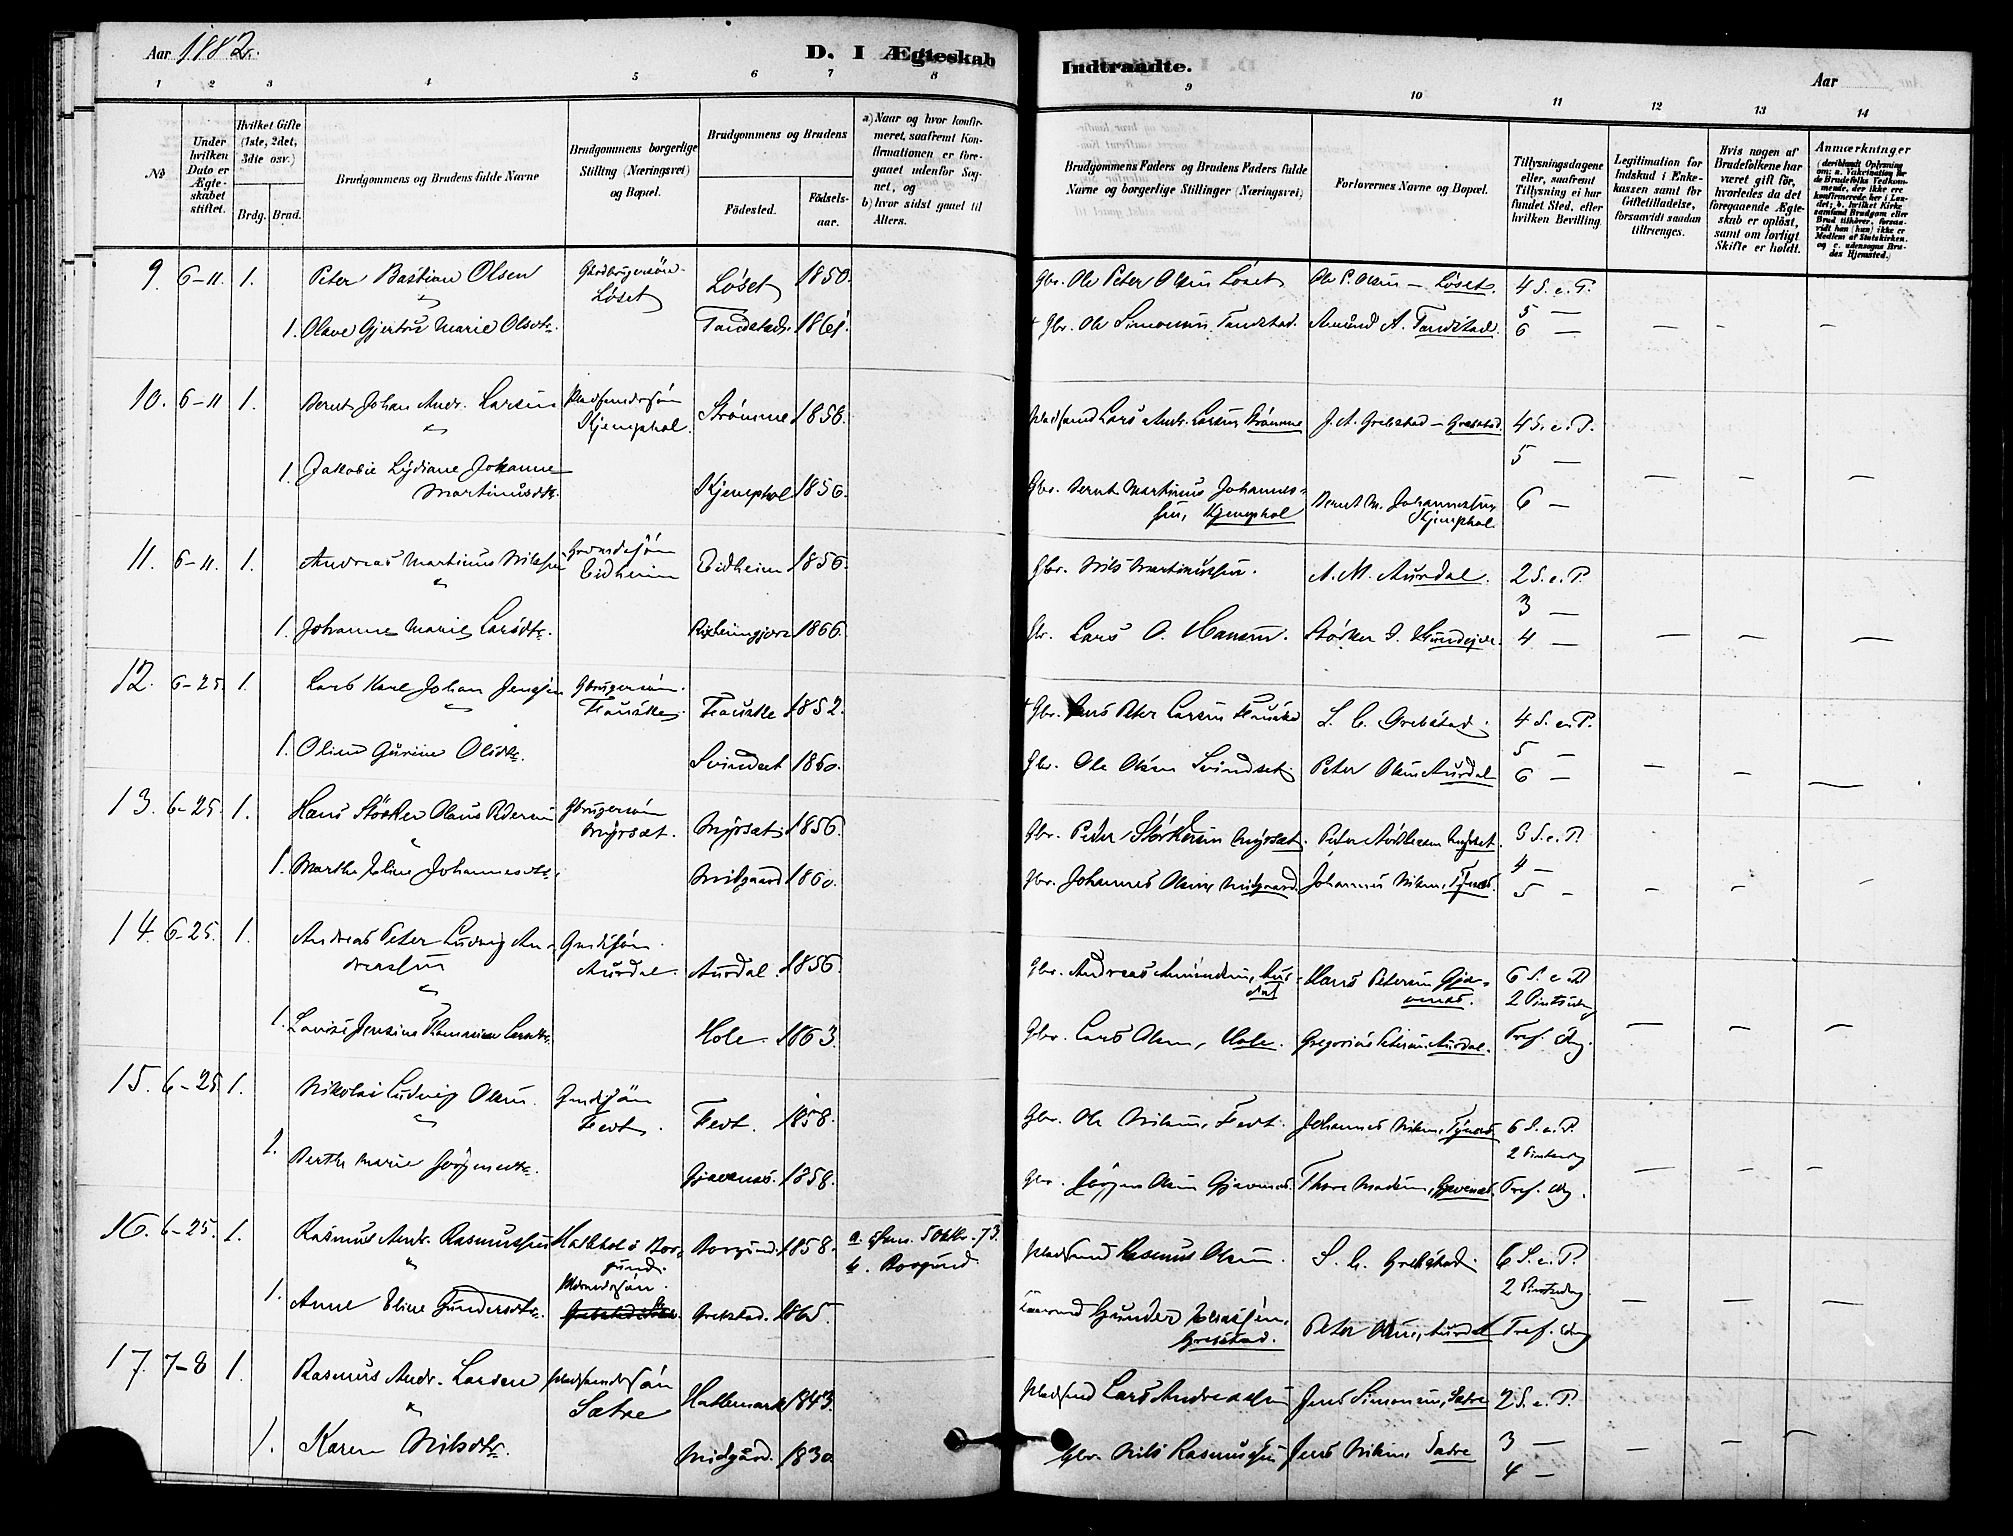 Aar 1882.
D. I Ægteskab
Indtraadte.
Aar
1 2 3 4 5 6 7 8
9 10 11 12 13 14
No
Under hvilken Dato er Ægteskabet stiftet.
Hvilket Gifte (1ste, 2det, 3die osv.)
Brdg. Brud.
Brudgommens og Brudens fulde Navne
Brudgommens borgerlige Stilling (Næringsvei) og Bopæl.
Brudgommens og Brudens
Fødested.
Fødselsaar.
a) Naar og hvor konfirmeret, saafremt Konfirmationen er foregaaet udenfor Sognet, og
b) hvor sidst gaaet til Alters.
Brudgommens Faders og Brudens Faders fulde Navne og borgerlige Stillinger (Næringsvei)
Forlovernes Navne og Bopæl.
Tillysningsdagene eller, saafremt Tillysning ei har fundet Sted, efter hvilken Bevilling.
Legitimation for Indskud i Enkekassen samt for Giftetilladelse, forsaavidt saadan tiltrænges.
Hvis nogen af Brudefolkene har været gift før, hvorledes da det foregaaende Ægteskab er opløst, samt om lovligt Skifte er holdt.
Anmærkninger
9. 6-11. 1. Peter Bastian Olsen Gbrugersøn Løset Løset 1850. Gbr. Ole Peter Olsen Løset Ole P. Olsen – Løset. 4 S. e. P.
5 —
1. Olave Gjertrue Marie Olsdtr. Tandstad. 1861. + Gbr. Ole Simonsen Tandstad. Amund A. Tandstad. 6 —
10. 6-11 1. Bernt Johan Andr. Larsen Pladsmandssøn Kjemphol. Strømme 1858. Pladsmand Lars Andr. Larsen Strømme J. A. Grebstad – Grebstad. 4 S. e. P.
5 —
1. Jakobie Lydiane Johanne Martinusdtr. Kjemphol 1856. Gbr. Bernt Martinus Johannessen, Kjemphol Bernt M. Johannessen Kjemphol. 6 —
11. 6-11. 1. Andreas Martinus Nilssen Gmandssøn Eidheim Eidheim 1856. Gbr. Nils Martinussen. A. M. Aurdal. 2 S. e. P.
3 —
1. Johanne Marie Larsdtr. 1866. Gbr. Lars O. Hansen. Størker 4 —
12. 6-25. 1. Lars Karl Johan Jenssen Gbrugersøn. Hauske 1852. + Gbr. Jens Peter Larsen L. C. Grebstad. 4 S. e. P.
5 —
1. Oline Gurine Olsdtr. Svindset 1860. Gbr. Ole Olsen Svindset. Peter Olsen Aurdal 6 —
13. 6-25. 1. Hans Størker Olaus Pedersen Gbrugersøn Myrsæt. Myrsæt. 1856. Gbr. Peder Størkersen Myrsæt. Peter Myrset. 3 S. e. P.
4 —
1. Marthe Eline Johannesdtr. Midgaard 1860. Gbr. Johannes Olsen, Midgaard. Johannes Nilsen, Tynes. 5 —
14. 6-25. 1. Andreas Peter Ludvig Andreassen Gmdssøn. Aurdal. Aurdal. 1856. Gbr. Andreas Amundsen, Aurdal Hans Petersen Gjævenes. 6 S. e. P.
2 Pintsedag
1. Lovise Jensine Larsdtr. Hole. 1863. Gbr. Lars Olsen, Hole. Gregorius Petersen Aurdal. Tref. dag.
15. 6-25. 1. Nikolai Ludvig Olsen. Gmdssøn Fedt. Fedt. 1858. Gbr. Ole Nilsen, Fedt. Johannes Nilsen, Tynes 6 S. e. P.
2 Pintsedag
1. Berthe Marie Jørgensdtr. Gjævenes. 1858. Gbr. Jørgen Olsen Gjævenes. Thore Madsen, Gjævenes. Tref. dag.
16. 6-25. 1. Rasmus Andr. Rasmussen Borgund. Borgund. 1858. a. 5 Oktbr. 73.
b. Borgund. Pladsmand Rasmus Olsen. L. C. Grebstad. 6 S. e. P.
2 Pintsedag
1. Anne Eline Gundersdtr. Grebstad. 1865. Gunder Eliassen, Grebstad. Peter Olsen, Aurdal Tref. dag
17. 7-8 1. Rasmus Andr. Larsen Pladsmandssøn Sætre Hallemark 1843. Pladsmand Lars Andreassen Jens Simonsen, Sætre 2 S. e. P.
3 —
1. Karen Nilsdtr. Midgård. 1830 Gbr. Nils Rasmussen Jens Nilsen Sætre 4 —